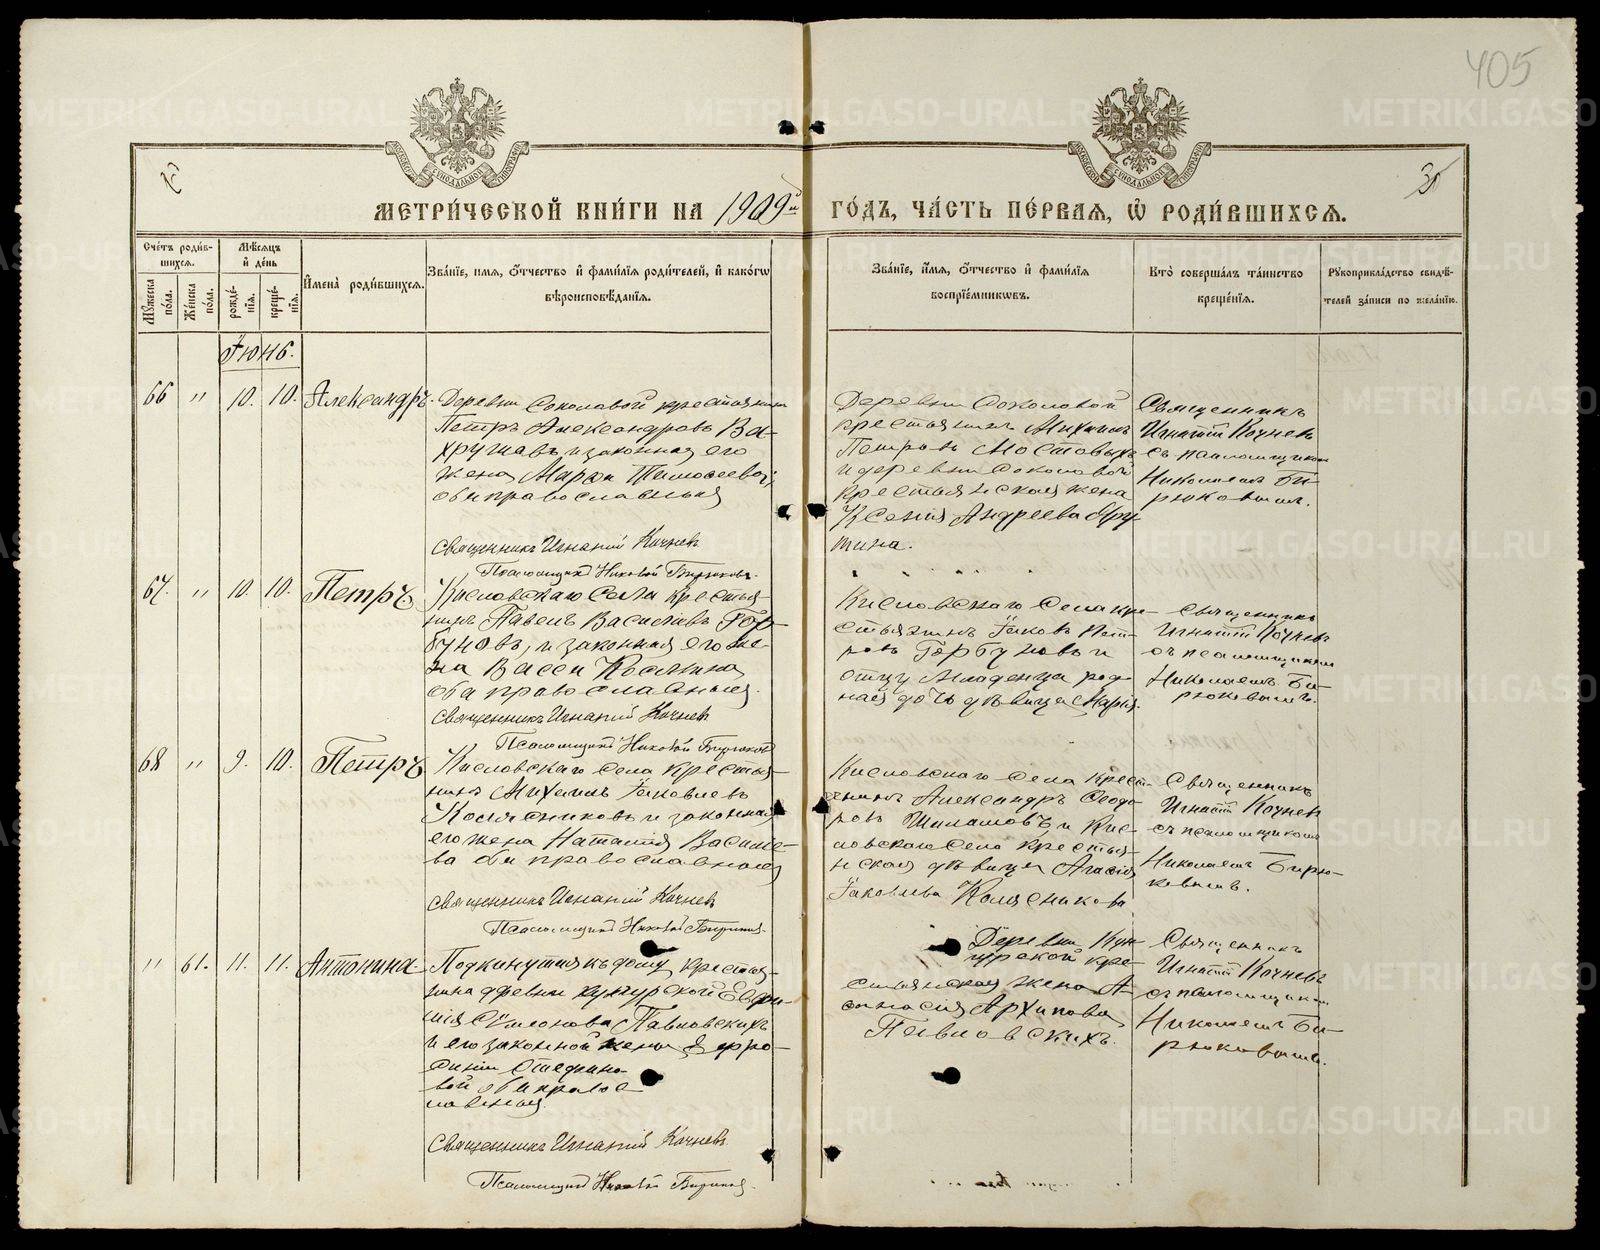 405
МЕТРИ́ЧЕСКОЙ КНИ́ГИ НА 1909й ГО́ДЪ, ЧА́СТЬ ПЕ́РВАЯ, Ѡ҆ РОДИ́ВШИХСЯ.
Сче́тъ роди́в-
шихся.
Мѣсяцъ
и҆ де́нь
Мꙋ́жеска
по́ла.
Же́нска
по́ла.
рожде́-
нїя.
креще́-
нїя.
И҆мена̀ роди́вшихся.
Зва́нїе, и҆мя, ѻ҆́тчество и҆ фами́лїя роди́телей, и҆ како́гѡ
вѣроисповѣ́данїя.
Зва́нїе, и҆́мя, ѻ҆́тчество и҆ фами́лїя
воспрїе́мникѡвъ.
Кто̀ соверша́лъ та́инство
креще́нїя.
Рꙋкоприкла́дство свидѣ́-
телей за́писи по жела́нїю.
Іюнь.
66 " 10. 10. Александръ.
Деревни Соколовой крестьянинъ
Петръ Александровъ Ва-
хрушевъ и законная его
жена Марѳа Тимоѳеева,
оба православныя
Священникъ Игнатій Кочневъ
Псаломщикъ Николай Бирюковъ.
Деревни Соколовой
крестьянинъ Михаилъ
Петровъ Мостовыхъ
и деревни Соколовой
крестьянская жена
Ксенія Андреева
Священникъ
Игнатій Кочневъ
съ псаломщикомъ
Николаемъ Би-
рюковымъ.
67. " 10. 10. Петръ
Кисловскаго села крестья-
нинъ Павелъ Васильевъ Гор-
буновъ, и законная его же-
на Васса
оба православныя.
Священникъ Игнатій Кочневъ
Псаломщикъ Николай Бирюковъ
Кисловскаго села кре-
стьянинъ Іаковъ Пет-
ровъ Горбуновъ и
отцу младенца род-
ная дочь дѣвица Марія.
Священникъ
Игнатій Кочневъ
съ псаломщикомъ
Николаемъ Би-
рюковымъ.
68 " 9. 10. Петръ
Кисловскаго села крестья-
нинъ Михаилъ Іаковлевъ
Колясниковъ и законная
его жена Наталія Василье-
ва оба православныя
Священникъ Игнатій Кочневъ
Псаломщикъ Николай Бирюковъ.
Кисловскаго села кресть-
янинъ Александръ Ѳеодо-
ровъ и Кис-
ловскаго села крестья-
нская дѣвица
Іаковлева Колясникова
Священникъ
Игнатій Кочневъ
съ псаломщикомъ
Николаемъ Бирю-
ковымъ.
" 61. 11. 11. Антонина
Подкинутая къ дому крестья-
нина деревни Кунгурской
Сѵмеонова Павловскихъ
и его законной жены
оба правос-
лавныя.
Священникъ Игнатій Кочневъ
Псаломщикъ Николай Бирюковъ.
Деревни Кун-
гурской кре-
стьянская жена А-
Архипова
Павловскихъ.
Священникъ
Игнатій Кочневъ
съ псаломщикомъ
Николаемъ Би-
рюковымъ.
METRIKI.GASO-URAL.RU